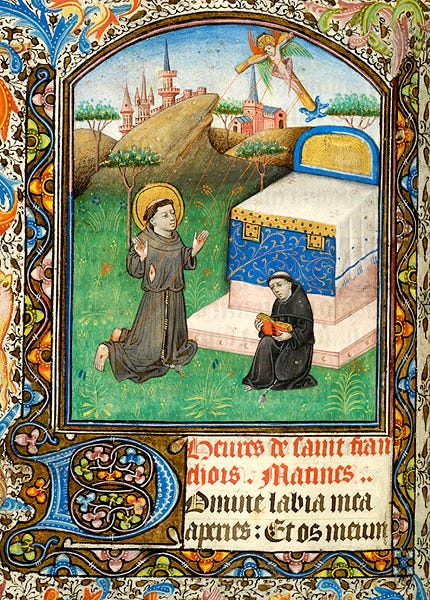 Heures de saint fran
chois . Matines ..
Domine labia mea
aperies : Et os meum